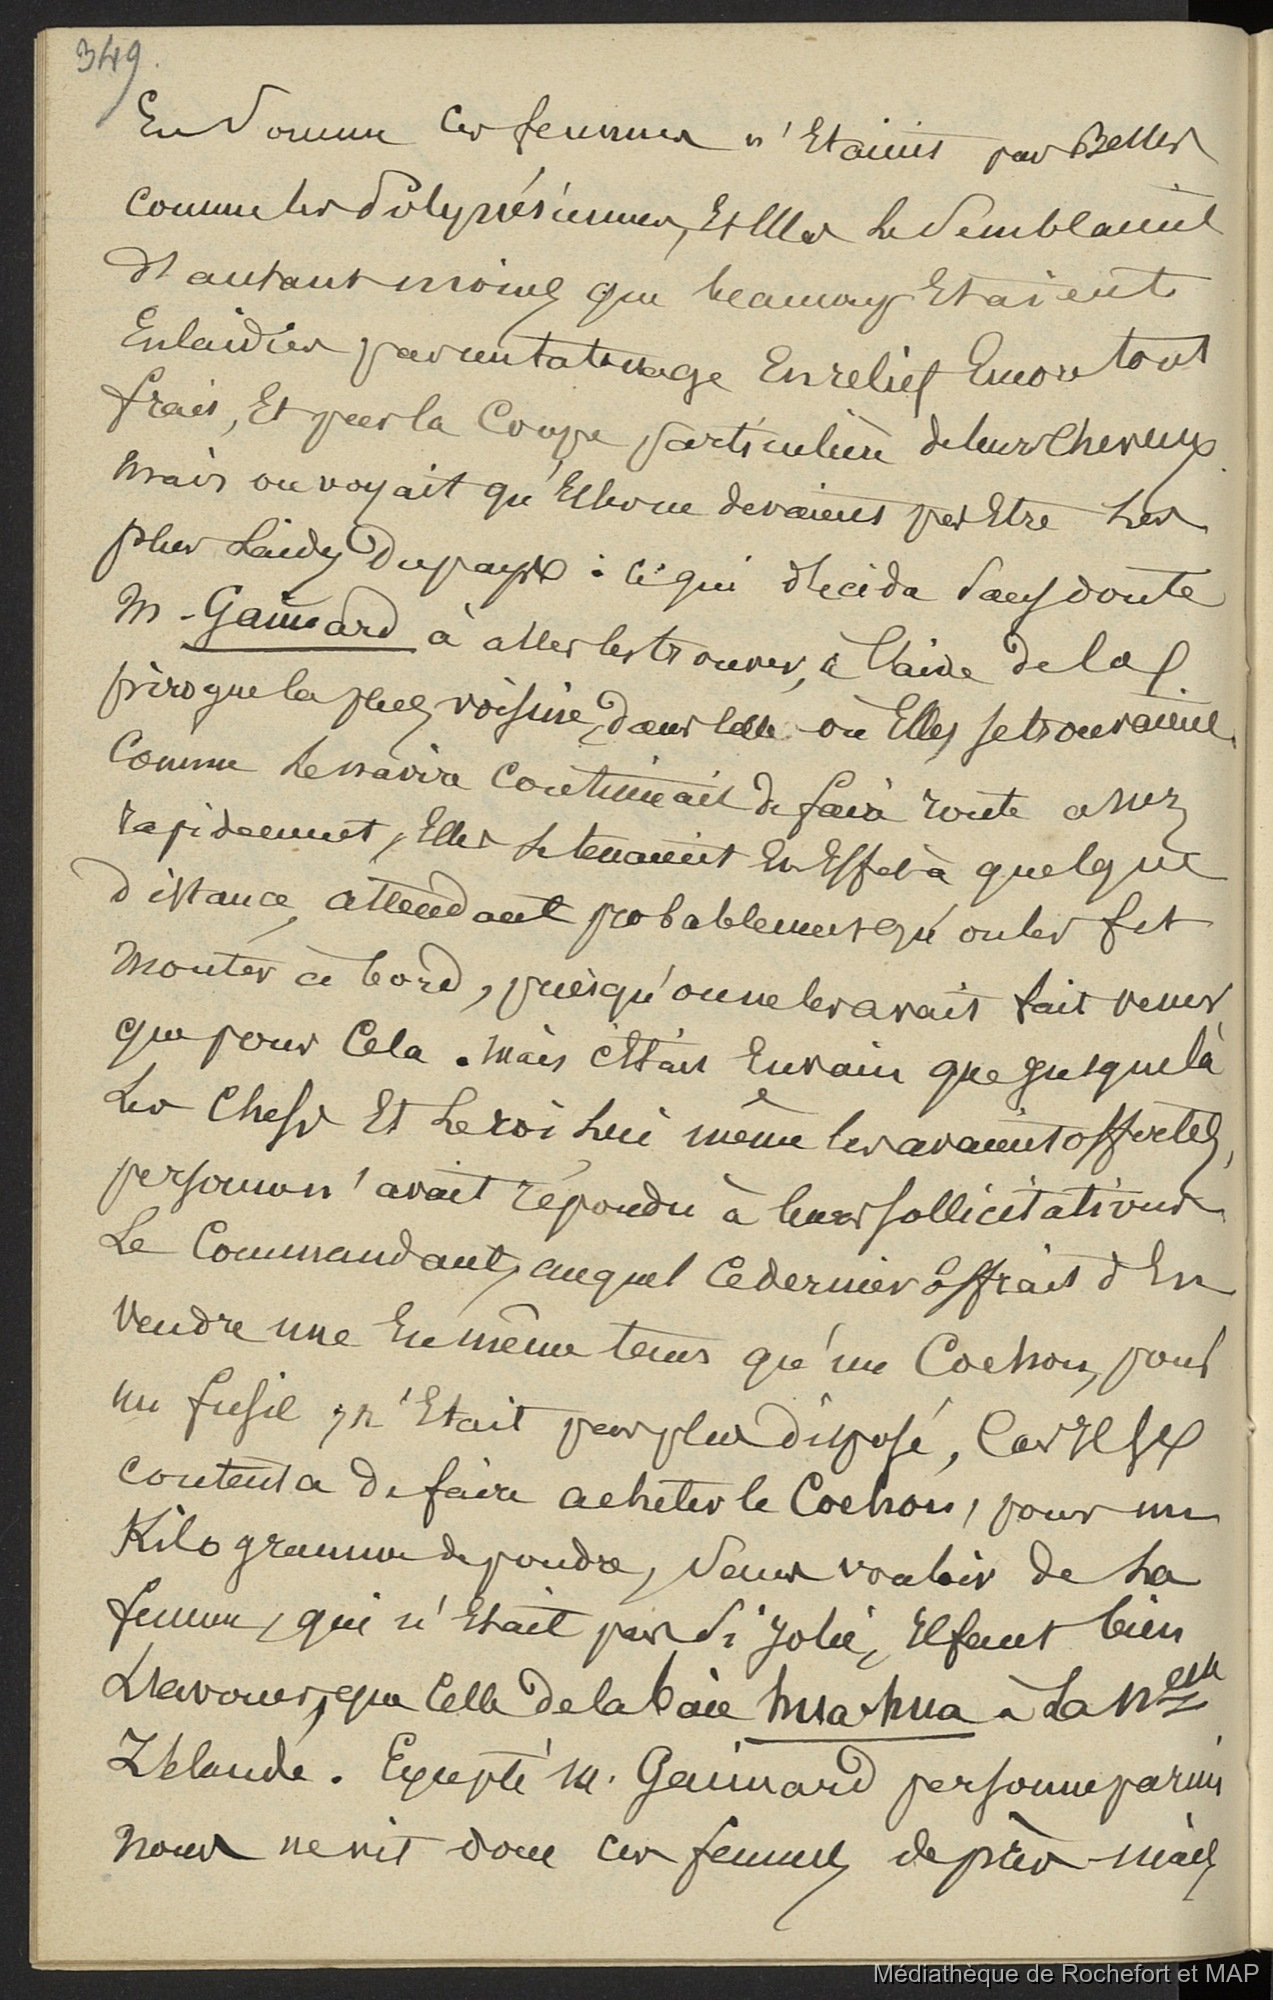 349.
En Somme ces femmes n'Etaient pas Belles
comme les Polynésiennes, Et Elles le Semblaient
d'autant moins que beaucoup Etaient
Enlaidies par un tatouage En relief Encore tout
frais, Et par la Coupe particulière de leurs Cheveux.
Mais on voyait qu'Elles ne devaient pas Etre les
plus Laides du pays : ce qui décida Sans doute
M. Gaimard à aller les trouver, à l'aide de la
pirogue la plus voisine, dans celle où Elles se trouvaient.
Comme le navire Continuait de faire route assez
rapidement, Elles se tenaient En Effet à quelque
distance, attendant probablement qu'on les fit
monter à bord, puisqu'on ne les avait fait venir
que pour Cela. Mais c'Etait Envain que jusque là
Les Chefs Et Le roi Lui même les avaient offertes,
personne n'avait répondu à leurs sollicitations.
Le Commandant, auquel Ce dernier offrait d'En
Vendre une En même tems qu'un Cochon, pour
un fusil, n'Etait pas plus disposé, Car Il se
contenta de faire acheter le Cochon, pour un
Kilogramme de poudre, Sans vouloir de la
femme, qui n'Etait pas Si jolie, Il faut bien
L'avouer, que Celle de la baie houa-houa à La Nelle
Zélande. Excepté M. Gaimard personne parmi
nous ne vit donc ces femmes de près mais
Médiathèque de Rochefort et MAP